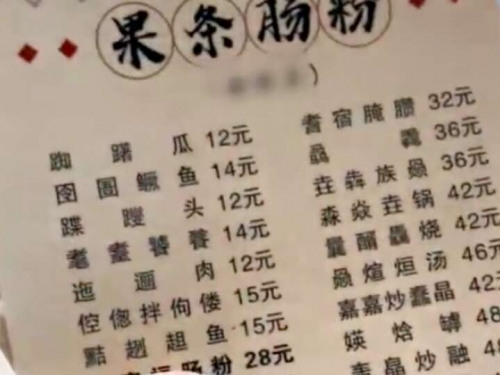 果条肠粉
踟躇瓜 12元
囹圄鳜鱼 14元
蹀躞头 12元
耄耋饕餮 14元
迤逦肉 12元
倥偬拌佝偻 15元
黠趔趄鱼 15元
肠粉 28元
耆宿腌臜 32元
骉靐 36元
垚犇族赑 36元
森焱垚锅 42元
囊醑轟烧 42元
赑煊烜汤 46元
嘉嘉炒蠢晶 42
媖焓 48
炒融 48